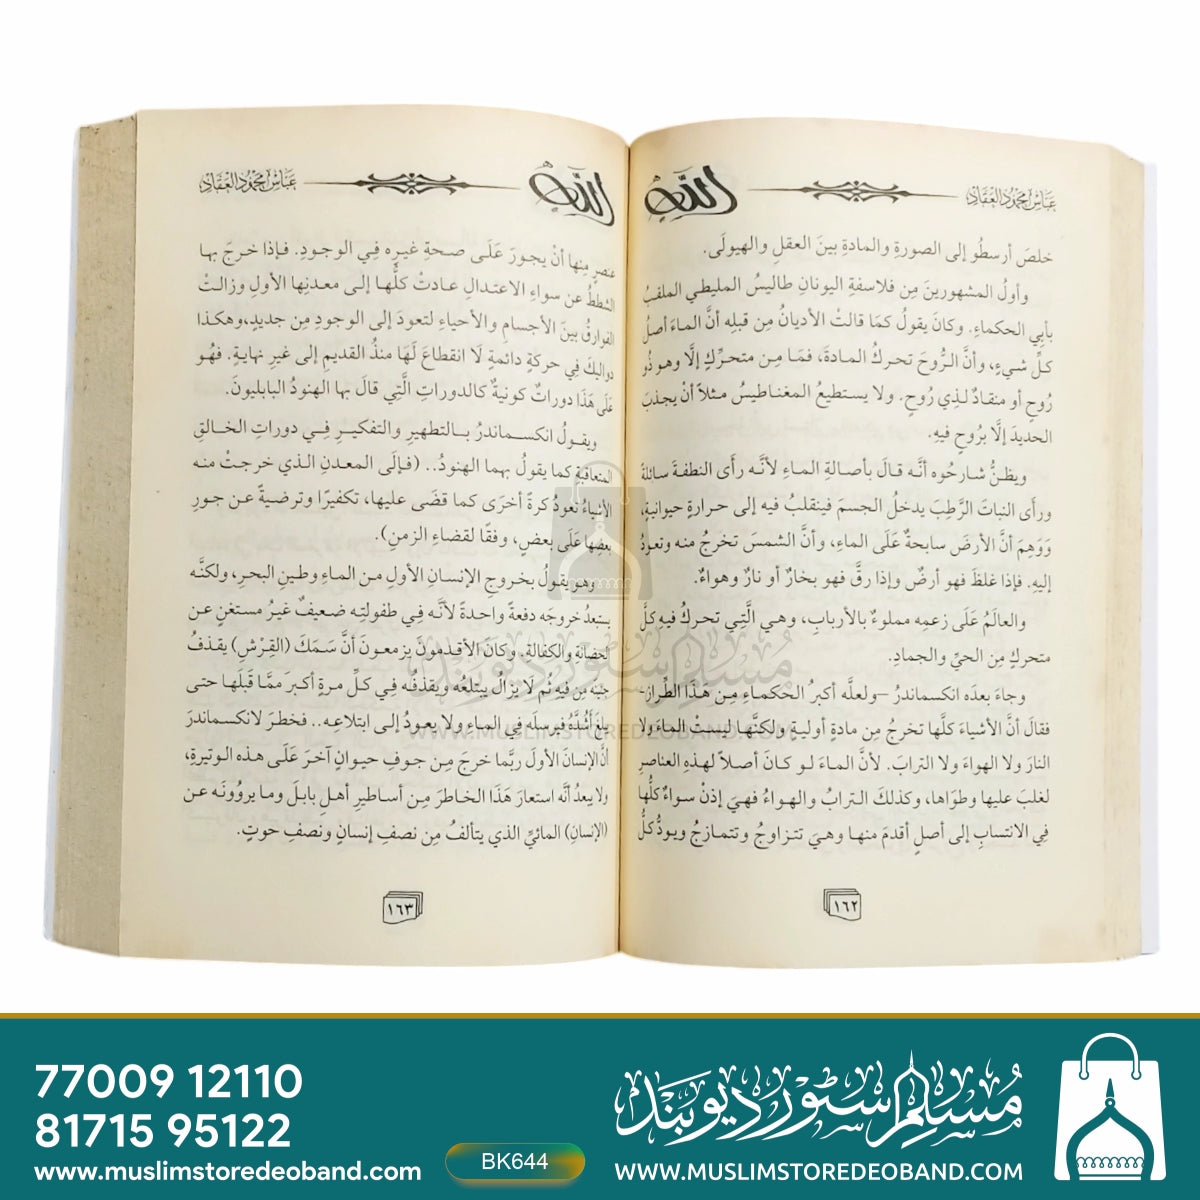 عباس محمود العقاد
الله
خلصَ أرسطُو إلى الصورةِ والمادةِ بينَ العقلِ والهيولَى.
وأولُ المشهورينَ مِن فلاسفةِ اليونانِ طاليسُ المليطي الملقبُ
بأبِي الحكماءِ. وكانَ يقولُ كمَا قالتْ الأديانُ مِن قبلِه أنَّ الماءَ أصلُ
كلِّ شيءٍ، وأنَّ الرُّوحَ تحركُ المادةَ، فمَا مِن متحرِّكٍ إلَّا وهو ذُو
رُوحٍ أو منقادٌ لذِي رُوحٍ. ولا يستطيعُ المغناطيسُ مثلاً أنْ يجذبَ
الحديدَ إلَّا برُوحٍ فيهِ.
ويظنُّ شارحُوه أنَّه قالَ بأصالةِ الماءِ لأنَّه رأَى النطفةَ سائلةً
ورأَى النباتَ الرَّطِبَ يدخلُ الجسمَ فينقلبُ فيه إلى حرارةٍ حيوانيةٍ،
وَوَهِمَ أنَّ الأرضَ سابحةٌ عَلَى الماءِ، وأنَّ الشمسَ تخرجُ منه وتعودُ
إليهِ. فإذا غلظَ فهو أرضٌ وإذا رقَّ فهو بخارٌ أو نارٌ وهواءٌ.
والعالَمُ عَلَى زعمِه مملوءٌ بالأربابِ، وهي الَّتِي تحركُ فيهِ كلَّ
متحركٍ مِن الحيِّ والجمادِ.
وجاءَ بعدَه انكسماندرُ –ولعله أكبرُ الحكماءِ مِن هَذا الطِّرازِ–
فقالَ أنَّ الأشياءَ كلَّها تخرجُ مِن مادةٍ أوليةٍ ولكنَّها ليستْ الماءَ ولا
النارَ ولا الهواءَ ولا الترابَ. لأنَّ الماءَ لو كانَ أصلاً لهذِهِ العناصرِ
لغلبَ عليها وطوَاها، وكذلكَ الترابُ والهواءُ فهيَ إذنْ سواءٌ كلُّها
فِي الانتسابِ إلى أصلٍ أقدمَ منها وهيَ تتزاوجُ وتتمازجُ ويودُّ كلُّ
١٦٢
الله
عباس محمود العقاد
عنصرٍ مِنها أنْ يجورَ عَلَى صحةِ غيرِه فِي الوجودِ. فإذا خرجَ بها
الشططُ عن سواءِ الاعتدالِ عادتْ كلُّها إلى معدنِها الأولِ وزالتْ
الفوارقُ بينَ الأجسامِ والأحياءِ لتعودَ إلى الوجودِ مِن جديدٍ، وهكذا
دواليكَ فِي حركةٍ دائمةٍ لَا انقطاعَ لَها منذُ القديمِ إلى غيرِ نهايةٍ. فهُو
عَلَى هَذَا دوراتٌ كونيةٌ كالدوراتِ الَّتِي قالَ بها الهنودُ البابليونَ.
ويقولُ انكسماندرُ بالتطهيرِ والتفكيرِ فِي دوراتِ الخالقِ
المتعاقبةِ كما يقولُ بهما الهنودُ.. (فإلى المعدنِ الذي خرجتْ منه
الأشياءُ تعودُ كرةً أخرَى كما قضَى عليها، تكفيرًا وترضيةً عن جورِ
بعضِها عَلَى بعضٍ، وفقًا لقضاءِ الزمنِ).
وهو يقولُ بخروجِ الإنسانِ الأولِ من الماءِ وطينِ البحرِ، ولكنَّه
يستبعدُ خروجَه دفعةً واحدةً لأنَّه فِي طفولتِه ضعيفٌ غيرُ مستغنٍ عن
الحضانةِ والكفالةِ. وكانَ الأقدمونَ يزعمونَ أنَّ سَمَكَ (القِرْشِ) يقذفُ
جنينَه مِن فيهِ ثُم لَا يزالُ يبتلعُه ويقذفُه فِي كلِّ مرةٍ أكبرَ ممَّا قبلَها حتى
يبلغَ أَشُدَّهُ فيرسلَه فِي الماءِ ولا يعودُ إلى ابتلاعِه.. فخطرَ لانكسماندرَ
أنَّ الإنسانَ الأولَ ربَّما خرجَ مِن جوفِ حيوانٍ آخرَ عَلَى هذه الوتيرةِ،
ولا يبعدُ أنَّه استعارَ هَذَا الخاطرَ مِن أساطيرِ أهلِ بابلَ وما يروُونَه عن
(الإنسانِ) المائيِّ الذي يتألفُ مِن نصفِ إنسانٍ ونصفِ حوتٍ.
١٦٣
مسلم سٹور دیوبند
WWW.MUSLIMSTOREDEOBAND.COM
77009 12110
81715 95122
www.muslimstoredeoband.com
BK644
مسلم سٹور دیوبند
WWW.MUSLIMSTOREDEOBAND.COM